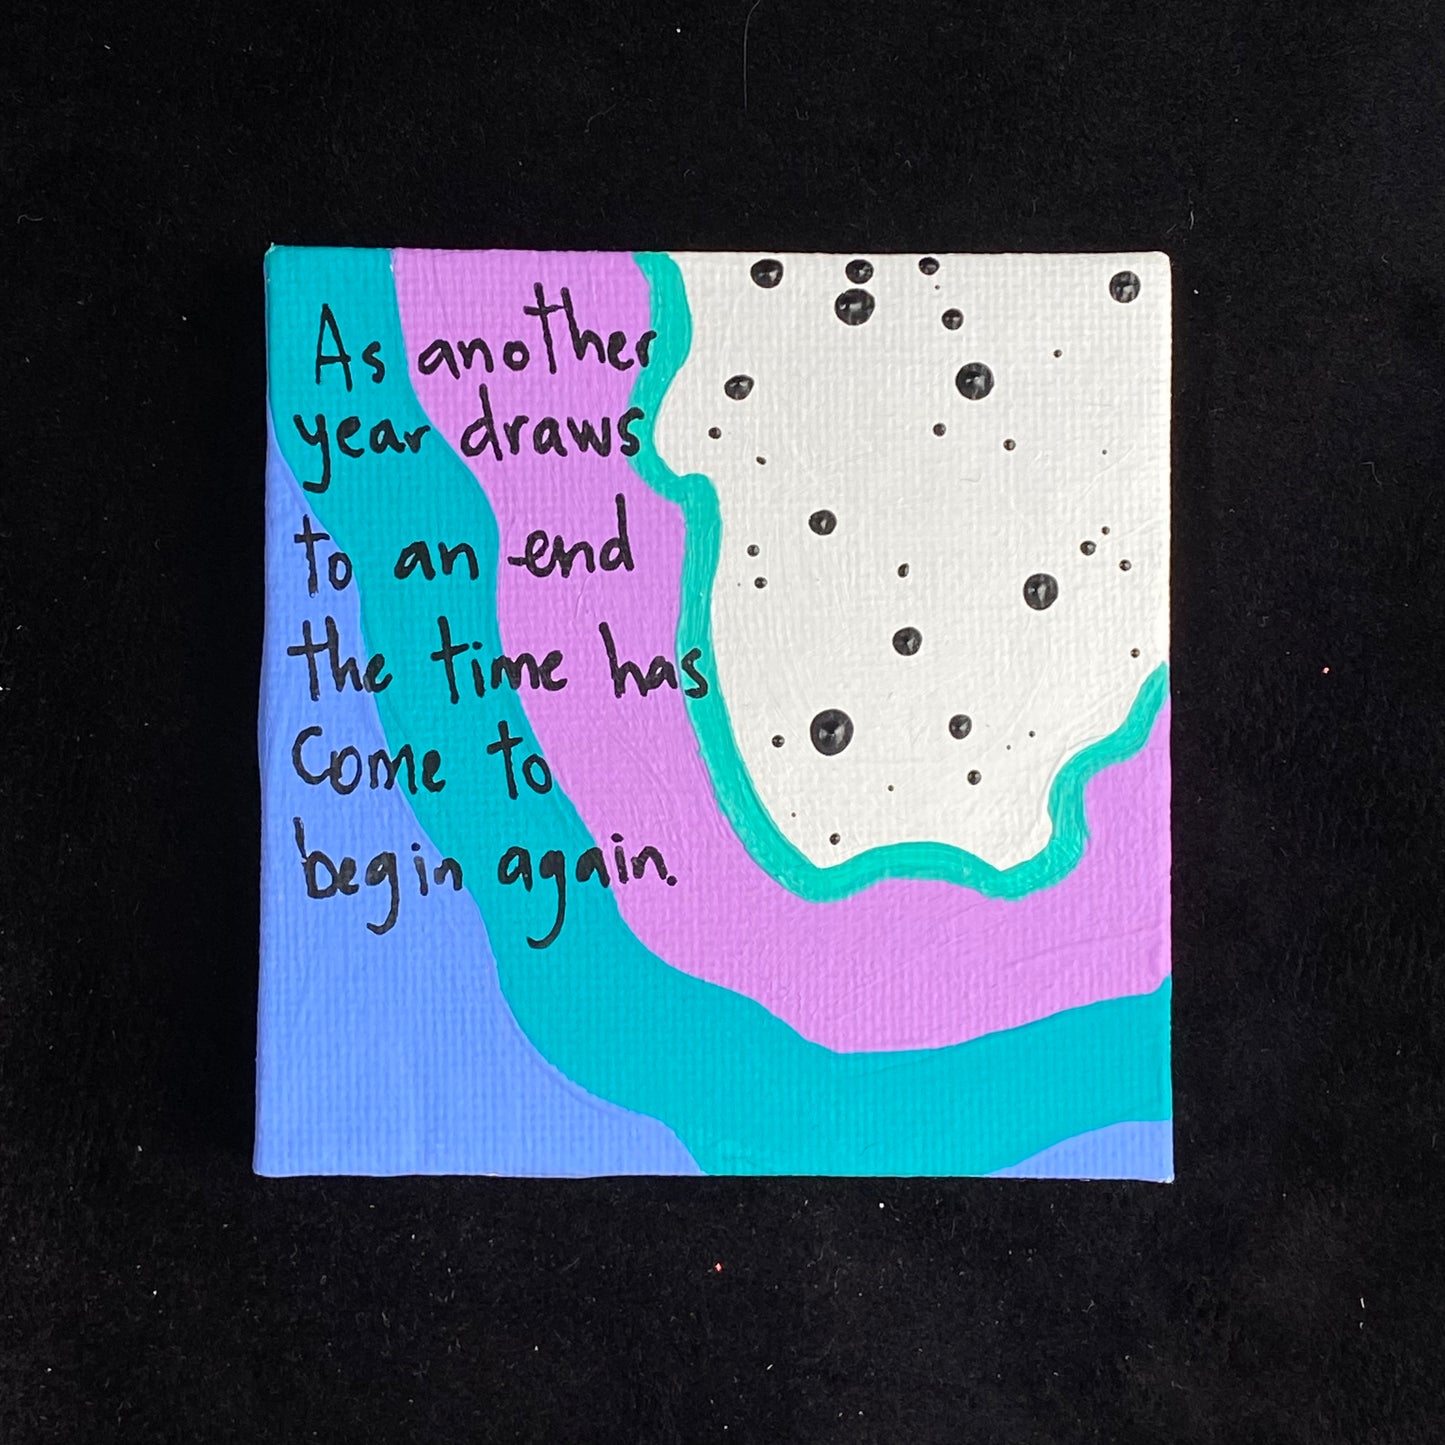 As another
year draws
to an end
the time has
Come to
begin again.